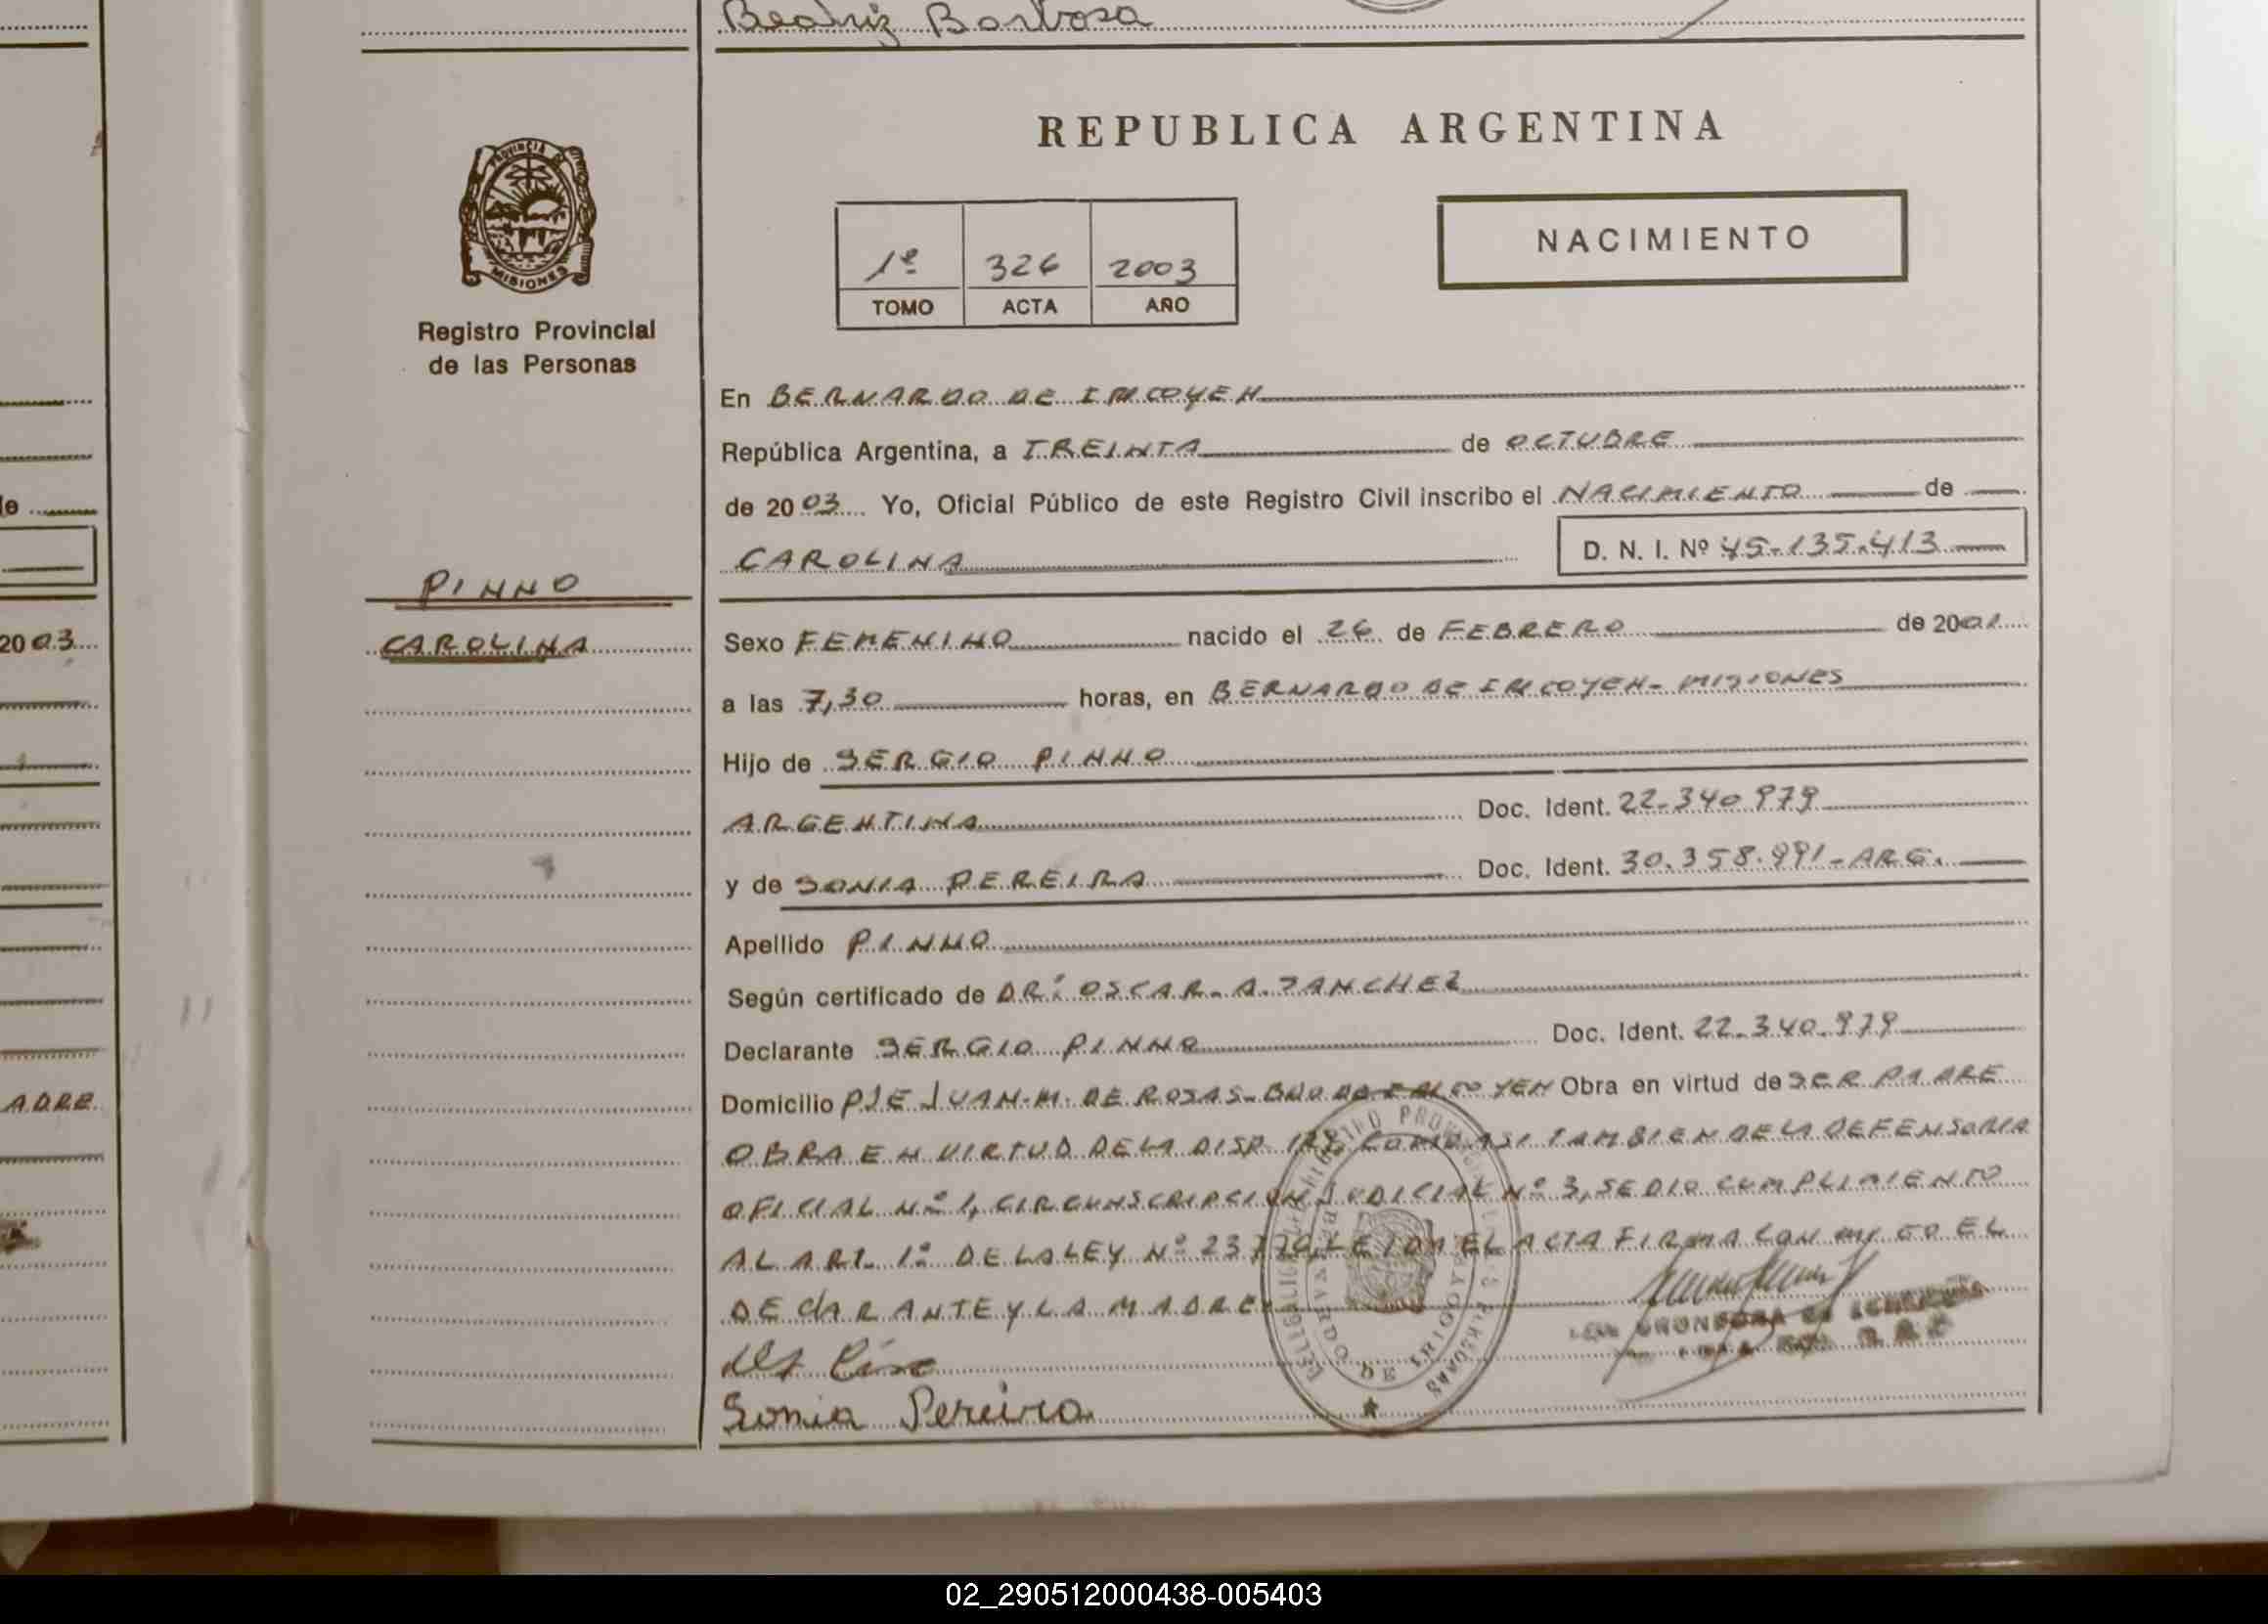 Beatriz Barbosa
REPUBLICA ARGENTINA
PROVINCIA DE
MISIONES
Registro Provincial
de las Personas
1º 326 2003
TOMO ACTA AÑO
NACIMIENTO
En BERNARDO DE IRIGOYEN
República Argentina, a TREINTA de OCTUBRE
de 2003 Yo, Oficial Público de este Registro Civil inscribo el NACIMIENTO de
CAROLINA D. N. I. Nº 45-135.413
PINNO
CAROLINA
Sexo FEMENINO nacido el 26 de FEBRERO de 2001
a las 7,30 horas, en BERNARDO DE IRIGOYEN- MISIONES
Hijo de SERGIO PINNO
ARGENTINA Doc. Ident. 22.340.979
y de SONIA PEREIRA Doc. Ident. 30.358.991-ARG.
Apellido PINNO
Según certificado de DR: OSCAR. A. SANCHEZ
Declarante SERGIO PINNO Doc. Ident. 22.340.979
Domicilio PJE JUAN. M. DE ROSAS- BDO DE YEN Obra en virtud de SER PADRE
OBRA EN VIRTUD DE LA DISP. COMO ASI TAMBIEN DE LA DEFENSORIA
OFICIAL Nº 1, CIRCUNSCRIPCION JUDICIAL Nº 3, SE DIO CUMPLIMIENTO
AL ART. 1º DE LA LEY Nº LEIDA EL ACTA FIRMA CON EL
DECLARANTE Y LA MADRE
Sonia Pereira
2003
ADRE
02_290512000438-005403